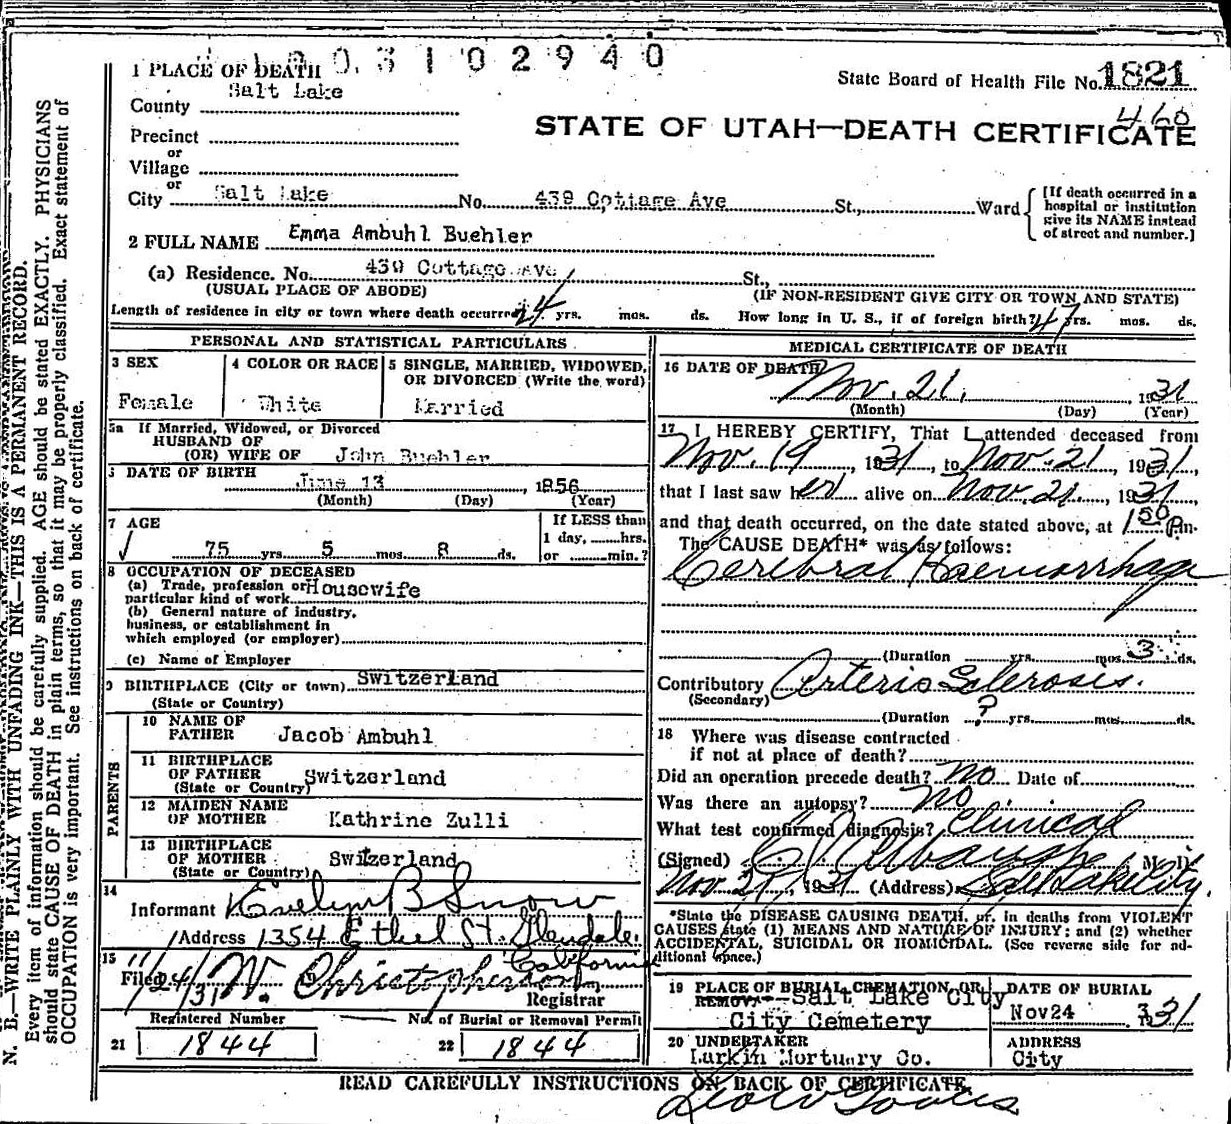 0 3 1 0 2 9 4 0
1 PLACE OF DEATH
State Board of Health File No. 1821
County Salt Lake
460
STATE OF UTAH—DEATH CERTIFICATE
Precinct
or
Village
or
City Salt Lake No. 439 Cottage Ave St., Ward
[If death occurred in a hospital or institution give its NAME instead of street and number.]
2 FULL NAME Emma Ambuhl Buehler
(a) Residence. No. 439 Cottage Ave St.,
(USUAL PLACE OF ABODE) (IF NON-RESIDENT GIVE CITY OR TOWN AND STATE)
Length of residence in city or town where death occurred 24 yrs. mos. ds. How long in U. S., if of foreign birth? 47 yrs. mos. ds.
PERSONAL AND STATISTICAL PARTICULARS
3 SEX
Female
4 COLOR OR RACE
White
5 SINGLE, MARRIED, WIDOWED, OR DIVORCED (Write the word)
Married
5a If Married, Widowed, or Divorced
HUSBAND OF
(OR) WIFE OF John Buehler
DATE OF BIRTH
June 13, 1856
(Month) (Day) (Year)
7 AGE
75 yrs. 5 mos. 8 ds.
If LESS than
1 day, hrs.
or min.?
8 OCCUPATION OF DECEASED
(a) Trade, profession or
particular kind of work Housewife
(b) General nature of industry,
business, or establishment in
which employed (or employer)
(c) Name of Employer
9 BIRTHPLACE (City or town) Switzerland
(State or Country)
PARENTS
10 NAME OF
FATHER Jacob Ambuhl
11 BIRTHPLACE
OF FATHER Switzerland
(State or Country)
12 MAIDEN NAME
OF MOTHER Kathrine Zulli
13 BIRTHPLACE
OF MOTHER Switzerland
(State or Country)
14
Informant Evelyn B Snow
Address 1354 Ethel St. Glendale
California
15
Filed 11/24/31 W. Christopherson
Registrar
Registered Number No. of Burial or Removal Permit
21 1844 22 1844
MEDICAL CERTIFICATE OF DEATH
16 DATE OF DEATH
Nov. 21, 1931
(Month) (Day) (Year)
17 I HEREBY CERTIFY, That I attended deceased from
Nov. 19, 1931, to Nov. 21, 1931,
that I last saw her alive on Nov. 21, 1931,
and that death occurred, on the date stated above, at 1 50 P.m.
The CAUSE DEATH* was as follows:
Cerebral Haemorrhage
(Duration yrs. mos. 3 ds.
Contributory Arterio Sclerosis.
(Secondary)
(Duration ? yrs. mos. ds.
18 Where was disease contracted
if not at place of death?
Did an operation precede death? no Date of
Was there an autopsy? no
What test confirmed diagnosis? Clinical
(Signed) M. D.
Nov 21, 1931 (Address) Salt Lake City.
*State the DISEASE CAUSING DEATH, or, in deaths from VIOLENT
CAUSES state (1) MEANS AND NATURE OF INJURY; and (2) whether
ACCIDENTAL, SUICIDAL OR HOMICIDAL. (See reverse side for ad-
ditional space.)
19 PLACE OF BURIAL, CREMATION, OR
REMOVAL Salt Lake City
City Cemetery
DATE OF BURIAL
Nov24 31
20 UNDERTAKER
Larkin Mortuary Co.
ADDRESS
City
READ CAREFULLY INSTRUCTIONS ON BACK OF CERTIFICATE.
N. B.—WRITE PLAINLY WITH UNFADING INK—THIS IS A PERMANENT RECORD.
Every item of information should be carefully supplied. AGE should be stated EXACTLY. PHYSICIANS
should state CAUSE OF DEATH in plain terms, so that it may be properly classified. Exact statement of
OCCUPATION is very important. See instructions on back of certificate.